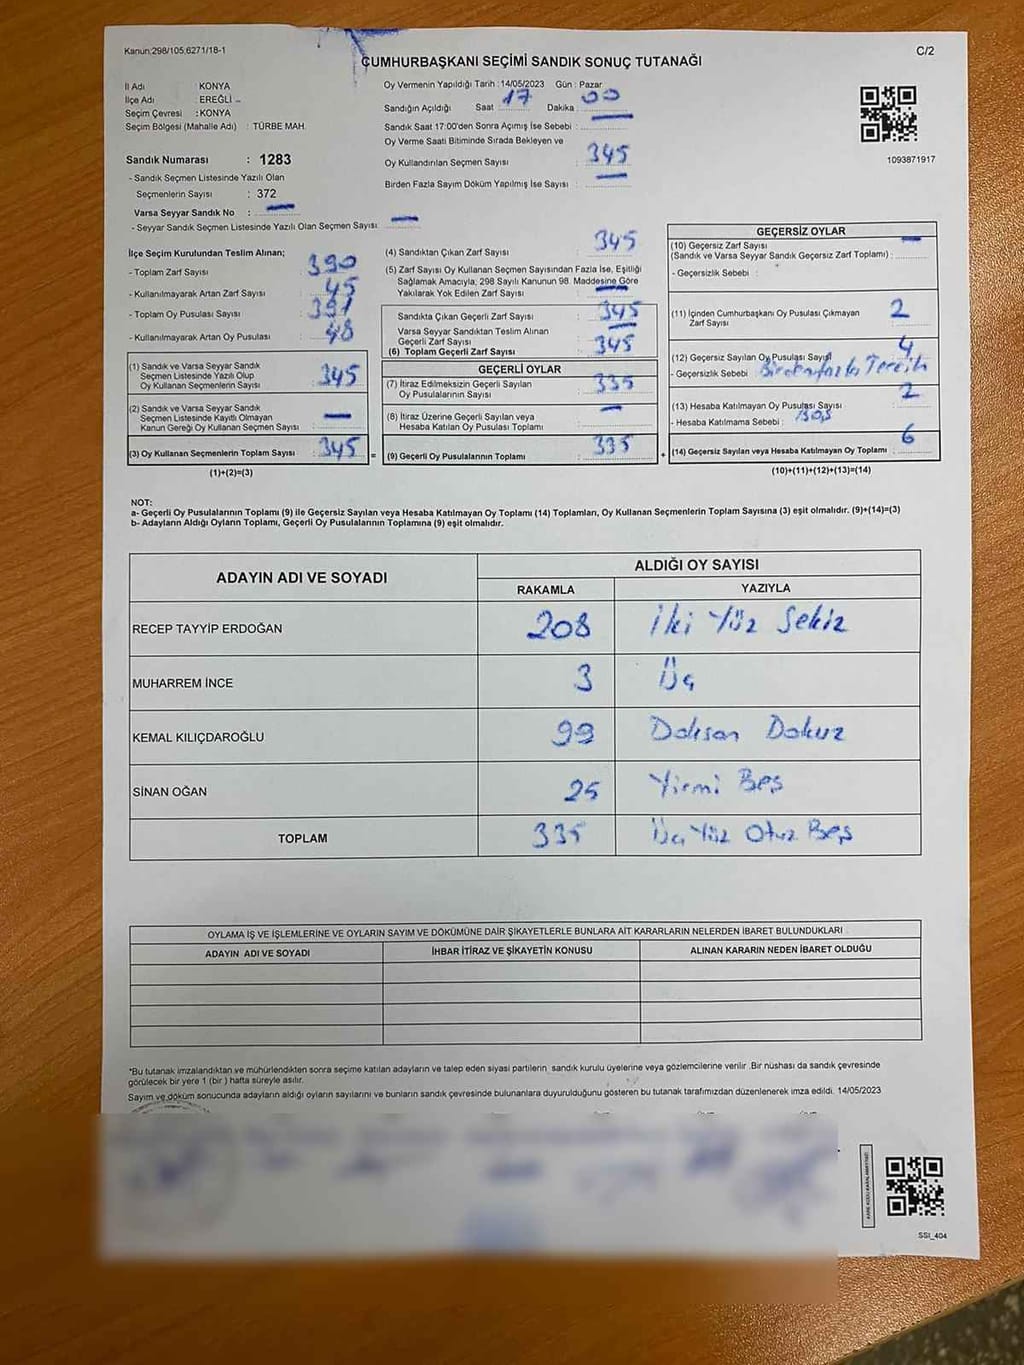 Kanun;298/105;6271/18-1
C/2
CUMHURBAŞKANI SEÇİMİ SANDIK SONUÇ TUTANAĞI
İl Adı KONYA
İlçe Adı EREĞLİ
Seçim Çevresi : KONYA
Seçim Bölgesi (Mahalle Adı) : TÜRBE MAH.
Oy Vermenin Yapıldığı Tarih : 14/05/2023 Gün : Pazar
Sandığın Açıldığı Saat 17 Dakika 00
Sandık Saat 17:00'den Sonra Açımış İse Sebebi :
Oy Verme Saati Bitiminde Sırada Bekleyen ve
Oy Kullandırılan Seçmen Sayısı : 345
Birden Fazla Sayım Döküm Yapılmış İse Sayısı : —
1093871917
Sandık Numarası : 1283
- Sandık Seçmen Listesinde Yazılı Olan
Seçmenlerin Sayısı : 372
Varsa Seyyar Sandık No : —
- Seyyar Sandık Seçmen Listesinde Yazılı Olan Seçmen Sayısı : —
İlçe Seçim Kurulundan Teslim Alınan;
- Toplam Zarf Sayısı : 390
- Kullanılmayarak Artan Zarf Sayısı : 45
- Toplam Oy Pusulası Sayısı : 391
- Kullanılmayarak Artan Oy Pusulası : 48
(1) Sandık ve Varsa Seyyar Sandık
Seçmen Listesinde Yazılı Olup
Oy Kullanan Seçmenlerin Sayısı : 345
(2) Sandık ve Varsa Seyyar Sandık
Seçmen Listesinde Kayıtlı Olmayan
Kanun Gereği Oy Kullanan Seçmen Sayısı : —
(3) Oy Kullanan Seçmenlerin Toplam Sayısı : 345 =
(1)+(2)=(3)
(4) Sandıktan Çıkan Zarf Sayısı : 345
(5) Zarf Sayısı Oy Kullanan Seçmen Sayısından Fazla İse, Eşitliği
Sağlamak Amacıyla; 298 Sayılı Kanunun 98. Maddesine Göre
Yakılarak Yok Edilen Zarf Sayısı : —
Sandıkta Çıkan Geçerli Zarf Sayısı : 345
Varsa Seyyar Sandıktan Teslim Alınan
Geçerli Zarf Sayısı : —
(6) Toplam Geçerli Zarf Sayısı : 345
GEÇERLİ OYLAR
(7) İtiraz Edilmeksizin Geçerli Sayılan
Oy Pusulalarının Sayısı : 335
(8) İtiraz Üzerine Geçerli Sayılan veya
Hesaba Katılan Oy Pusulası Toplamı : —
(9) Geçerli Oy Pusulalarının Toplamı : 335 +
GEÇERSİZ OYLAR
(10) Geçersiz Zarf Sayısı
(Sandık ve Varsa Seyyar Sandık Geçersiz Zarf Toplamı) : —
- Geçersizlik Sebebi :
(11) İçinden Cumhurbaşkanı Oy Pusulası Çıkmayan
Zarf Sayısı : 2
(12) Geçersiz Sayılan Oy Pusulası Sayısı 4
- Geçersizlik Sebebi : Birden fazla Tercih
(13) Hesaba Katılmayan Oy Pusulası Sayısı 2
- Hesaba Katılmama Sebebi : BOŞ
(14) Geçersiz Sayılan veya Hesaba Katılmayan Oy Toplamı : 6
(10)+(11)+(12)+(13)=(14)
NOT:
a- Geçerli Oy Pusulalarının Toplamı (9) ile Geçersiz Sayılan veya Hesaba Katılmayan Oy Toplamı (14) Toplamları, Oy Kullanan Seçmenlerin Toplam Sayısına (3) eşit olmalıdır. (9)+(14)=(3)
b- Adayların Aldığı Oyların Toplamı, Geçerli Oy Pusulalarının Toplamına (9) eşit olmalıdır.
ADAYIN ADI VE SOYADI
ALDIĞI OY SAYISI
RAKAMLA YAZIYLA
RECEP TAYYİP ERDOĞAN 208 İki Yüz Sekiz
MUHARREM İNCE 3 Üç
KEMAL KILIÇDAROĞLU 99 Doksan Dokuz
SİNAN OĞAN 25 Yirmi Beş
TOPLAM 335 Üç Yüz Otuz Beş
OYLAMA İŞ VE İŞLEMLERİNE VE OYLARIN SAYIM VE DÖKÜMÜNE DAİR ŞİKAYETLERLE BUNLARA AİT KARARLARIN NELERDEN İBARET BULUNDUKLARI
ADAYIN ADI VE SOYADI İHBAR İTİRAZ VE ŞİKAYETİN KONUSU ALINAN KARARIN NEDEN İBARET OLDUĞU
*Bu tutanak imzalandıktan ve mühürlendikten sonra seçime katılan adayların ve talep eden siyasi partilerin, sandık kurulu üyelerine veya gözlemcilerine verilir .Bir nüshası da sandık çevresinde
görülecek bir yere 1 (bir ) hafta süreyle asılır.
Sayım ve döküm sonucunda adayların aldığı oyların sayılarını ve bunların sandık çevresinde bulunanlara duyurulduğunu gösteren bu tutanak tarafımızdan düzenlenerek imza edildi. 14/05/2023
SSI_404